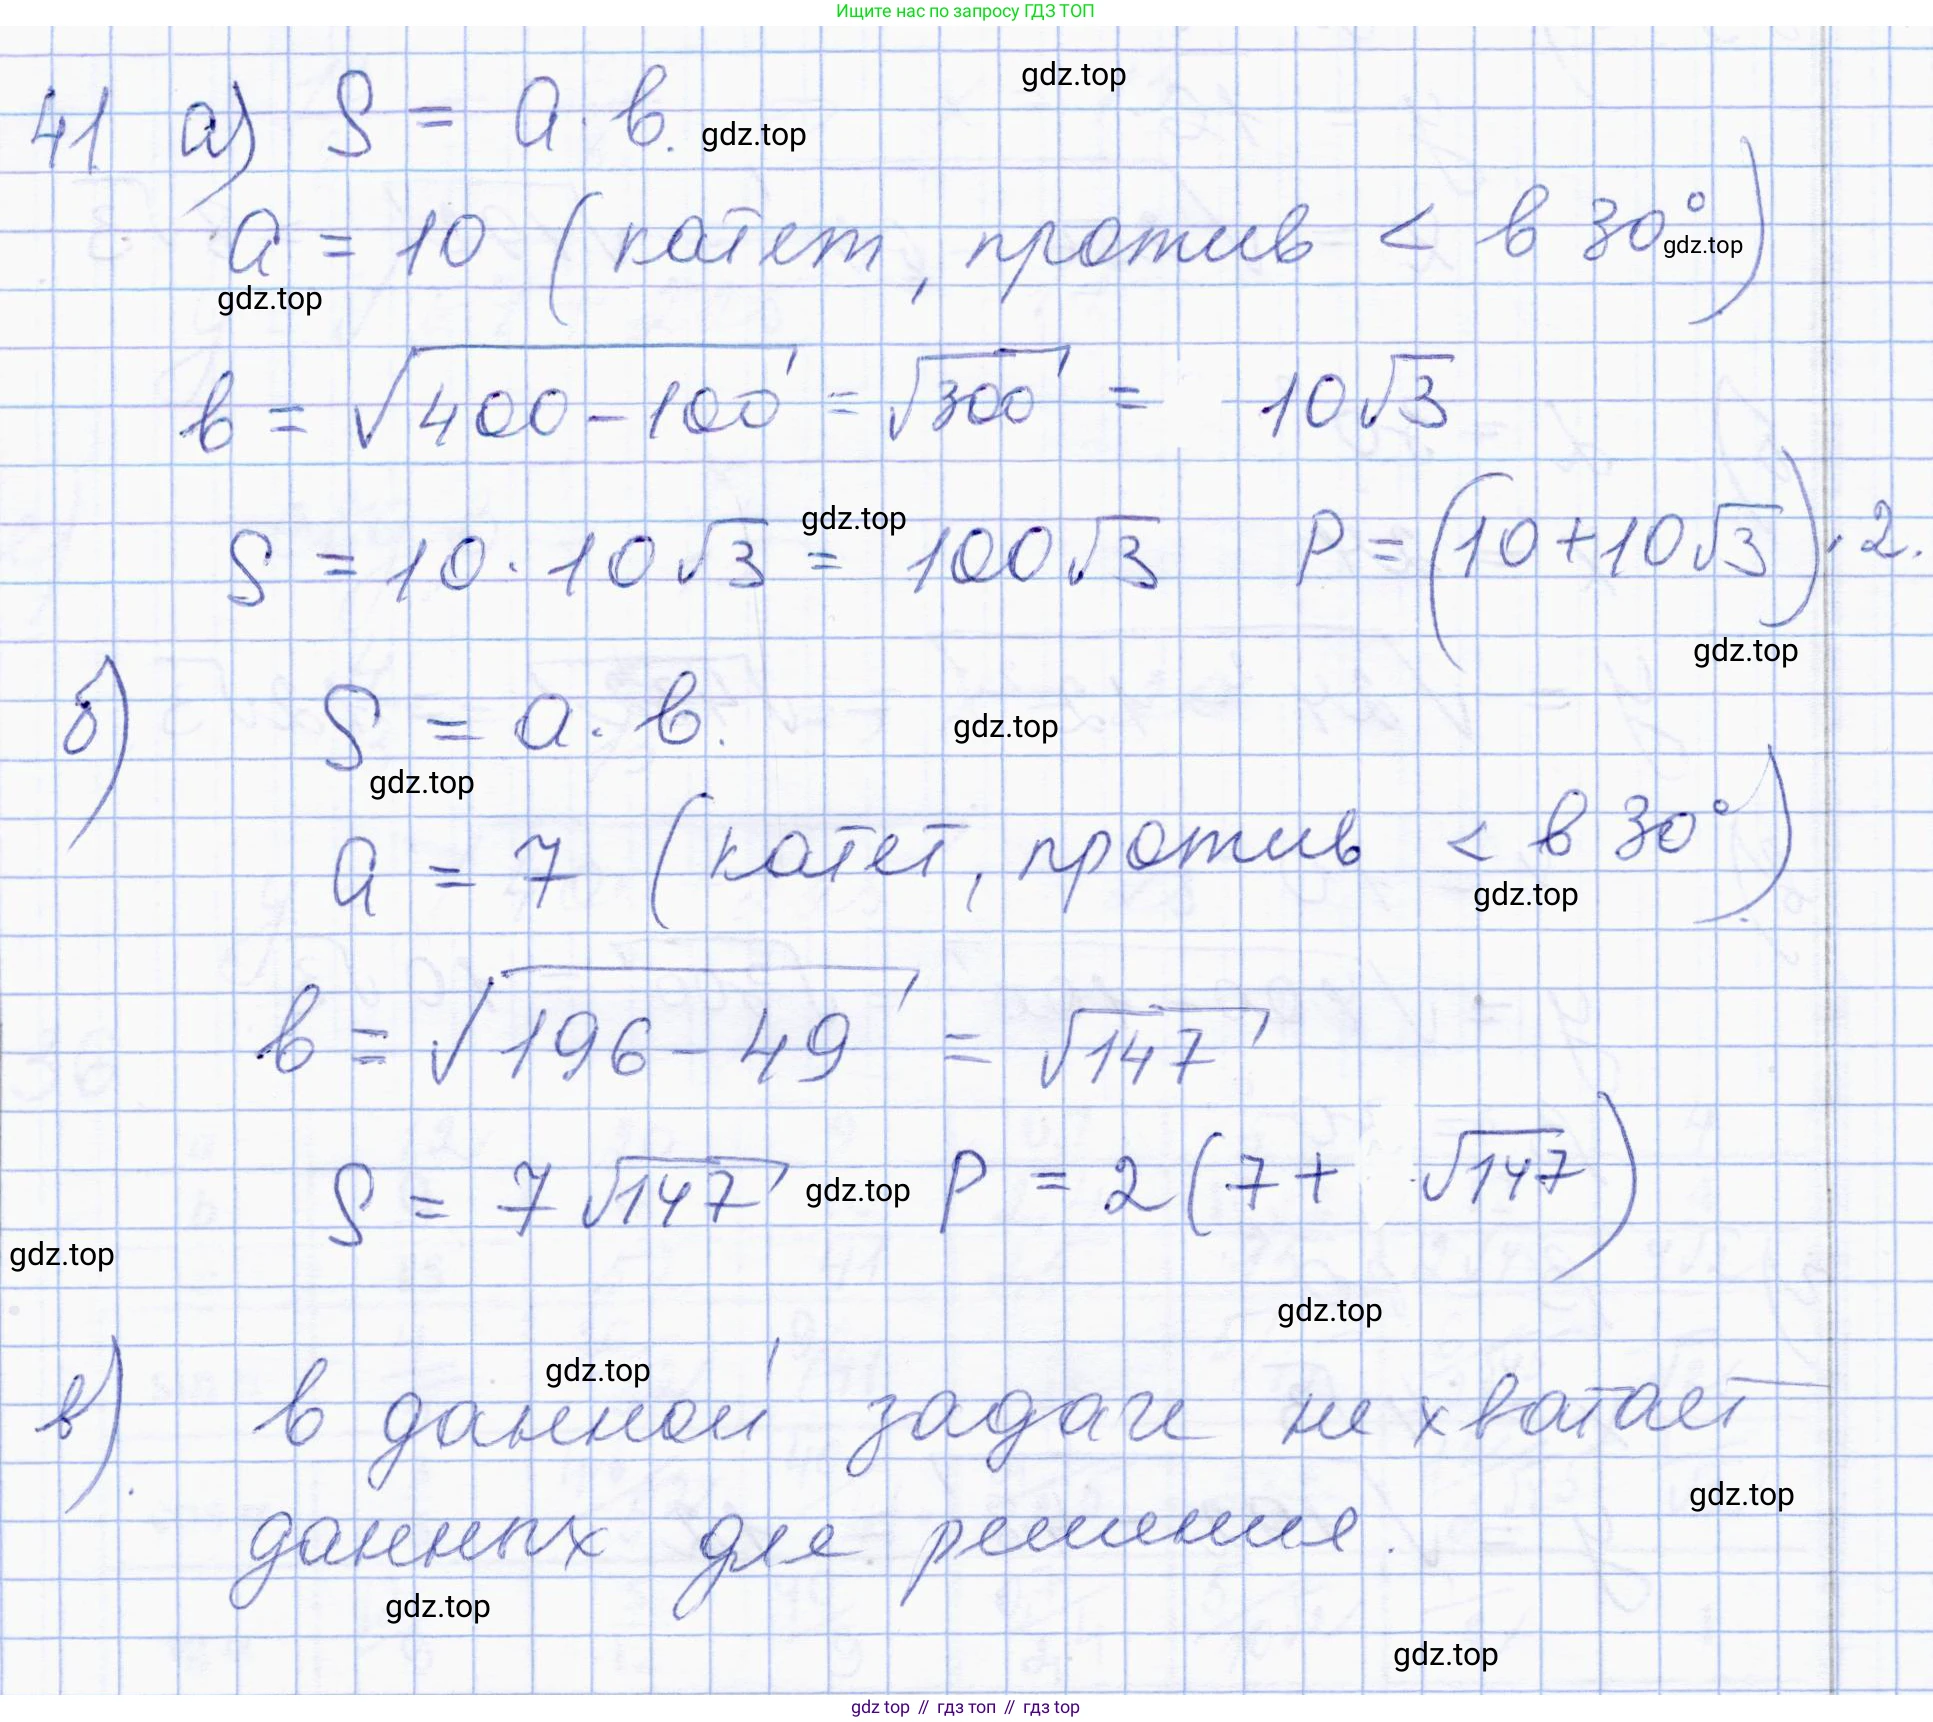 Ищите нас по запросу ГДЗ ТОП
gdz.top
41 а) S = a · b.
gdz.top
a = 10 (катет, против < в 30°)
gdz.top
gdz.top
b = √400 - 100 = √300 = 10√3
gdz.top
S = 10 · 10√3 = 100√3 P = (10 + 10√3) · 2.
gdz.top
б) S = a · b.
gdz.top
gdz.top
a = 7 (катет, против < в 30°)
gdz.top
b = √196 - 49 = √147
S = 7√147 gdz.top P = 2(7 + √147)
gdz.top
gdz.top
gdz.top
в) В данной задаче не хватает
gdz.top
данных для решения.
gdz.top
gdz.top
gdz top // гдз топ // гдз top